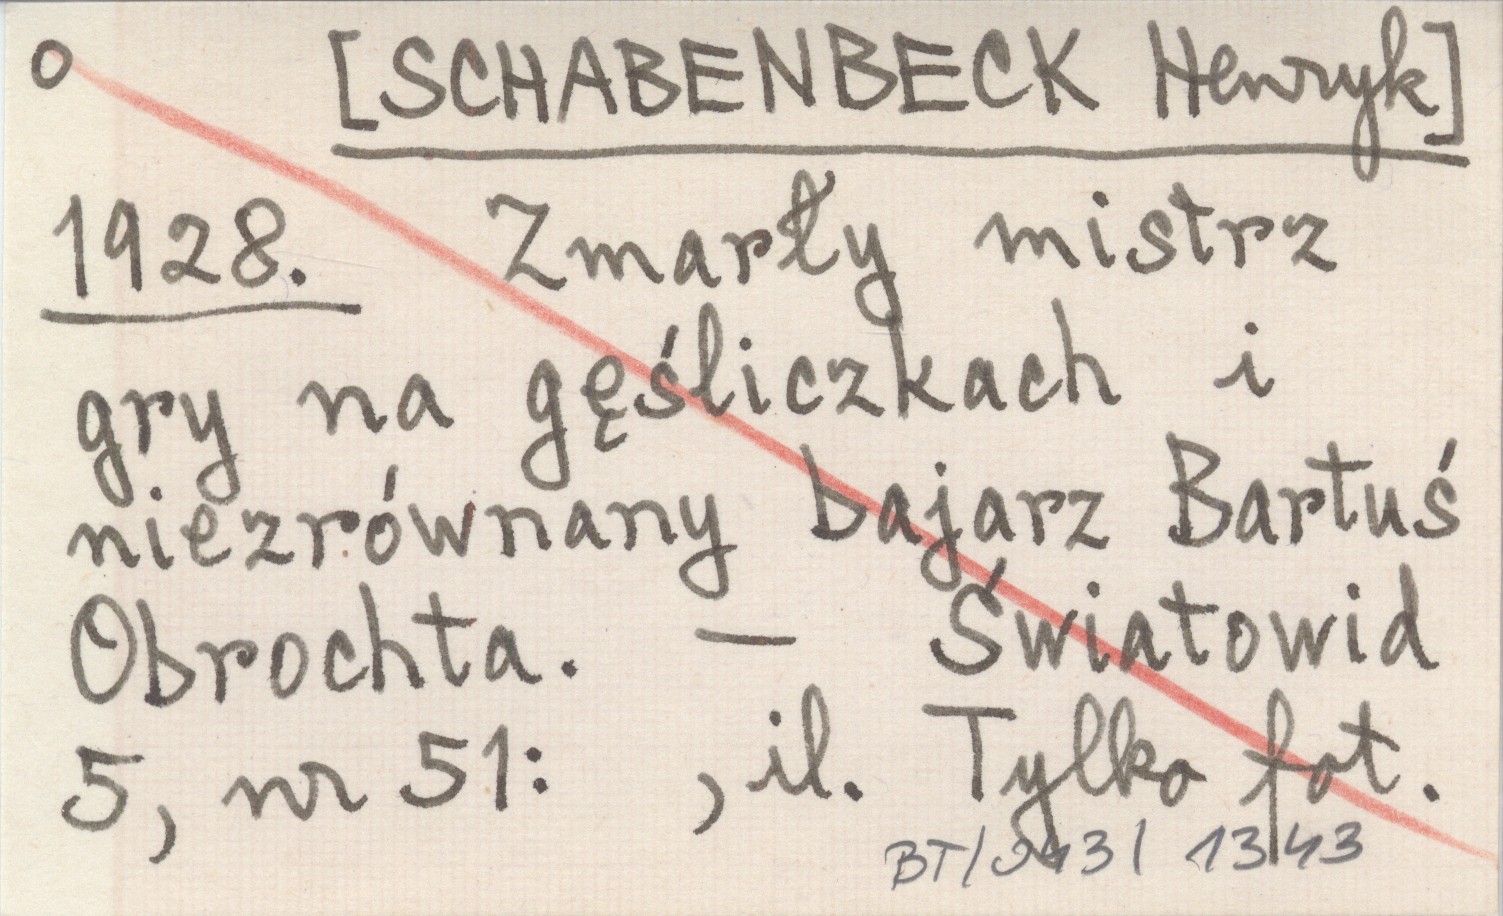 o [SCHABENBECK Henryk]
1928. Zmarły mistrz
gry na gęśliczkach i
niezrównany bajarz Bartuś
Obrochta. — Światowid
5, nr 51: , il. Tylko fot.
1343